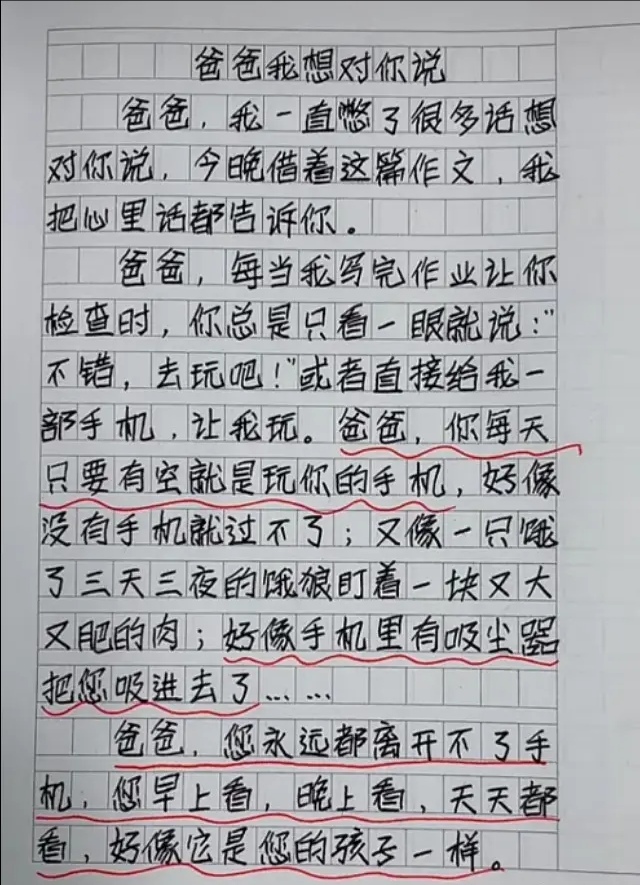 爸爸我想对你说
爸爸，我一直憋了很多话想
对你说，今晚借着这篇作文，我
把心里话都告诉你。
爸爸，每当我写完作业让你
检查时，你总是只看一眼就说："
不错，去玩吧！"或者直接给我一
部手机，让我玩。爸爸，你每天
只要有空就是玩你的手机，好像
没有手机就过不了；又像一只饿
了三天三夜的饿狼盯着一块又大
又肥的肉；好像手机里有吸尘器
把您吸进去了……
爸爸，您永远都离开不了手
机，您早上看，晚上看，天天都
看，好像它是您的孩子一样。